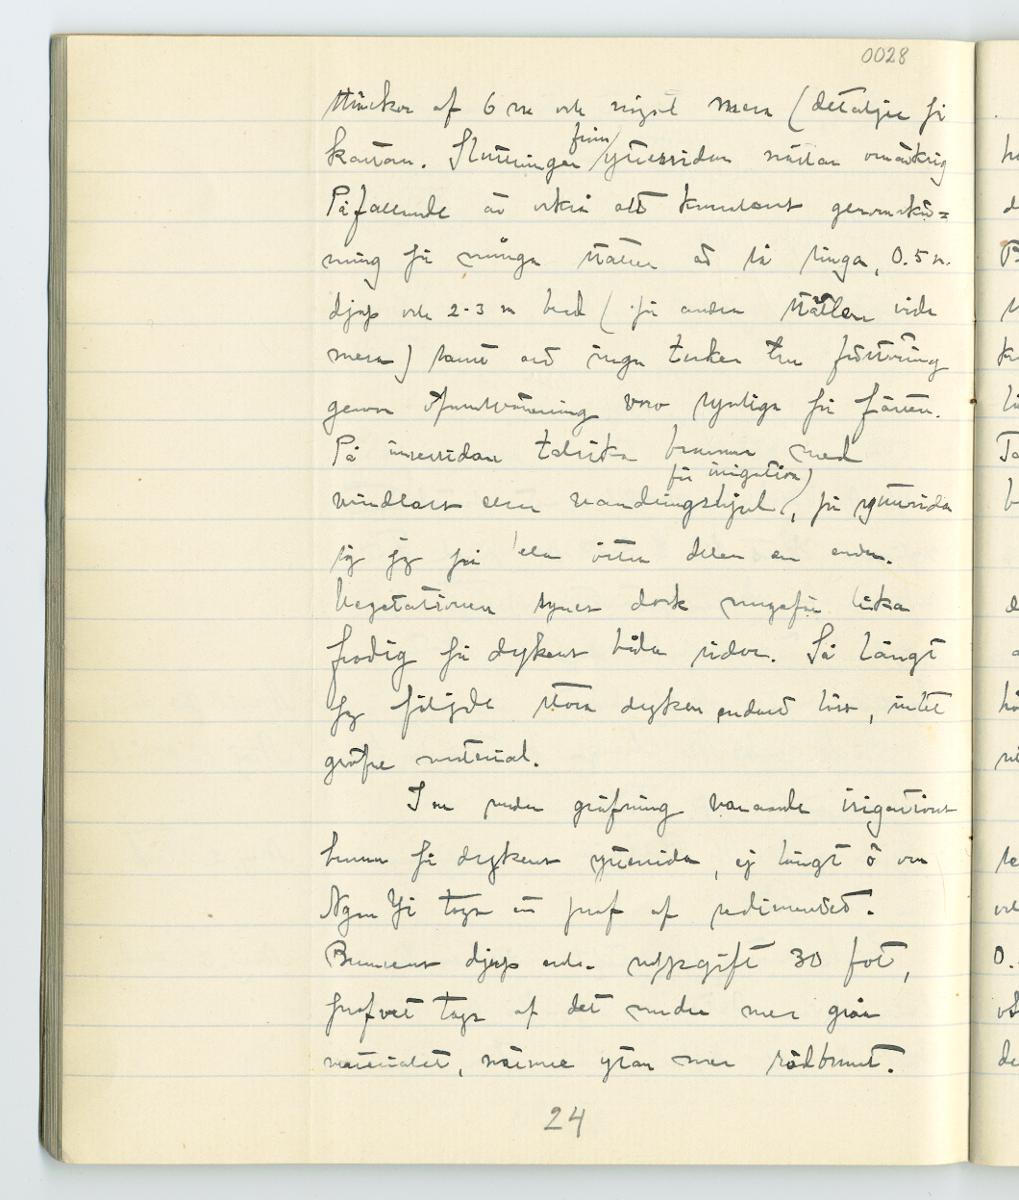 0028
sträckor af 6 m och något mera (detaljer på
kartan. Sluttningen från yttersidan nästan omärklig
Påfallande är också att kunstens genomskär=
ning på många ställen är så ringa, 0.5 m.
djup och 2-3 m bred (på andra ställen vida
mera) samt att inga tecken till förstöring
genom öfversvämning voro synliga på fälten.
På innersidan talrika brunnar med
för irrigation)
vindlast eller vandringshjul, på yttersidan
såg jg på hela östra delen en enda.
Vegetationen synes dock ungefär lika
frodig på dykens båda sidor. Så långt
jg följde stora dyken endast löss, intet
gröfre material.
I en under gräfning varande irrigations
brunn på dykens yttersida, ej långt ö om
Ngan Yi togs ett prof af sedimentet.
Brunnens djup enl. uppgift 30 fot,
profvet togs af det undre mer gråa
materialet, närmre ytan mer rödbrunt.
24